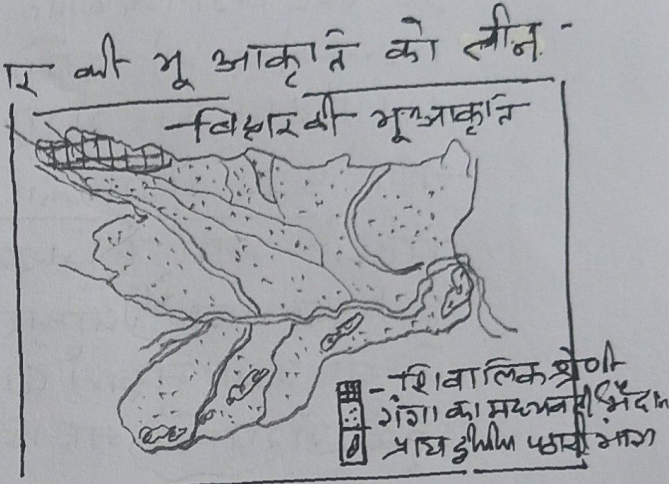 र की भू आकृति को तीन
बिहार की भूआकृति
- शिवालिक श्रेणी
गंगा का मध्यवर्ती मैदान
प्रायद्वीपीय पठारी भाग